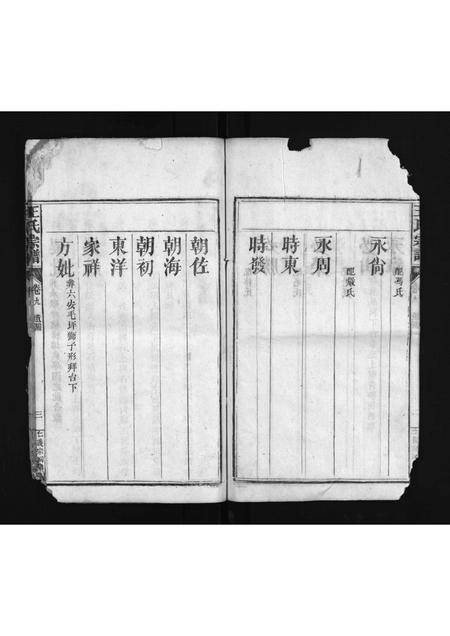 配馮氏
永尙
配嚴氏
永周
時東
時發
朝佐
朝海
朝初
東洋
家祥
方妣
葬六安毛坪獅子形拜台下
王氏宗譜
卷九
三